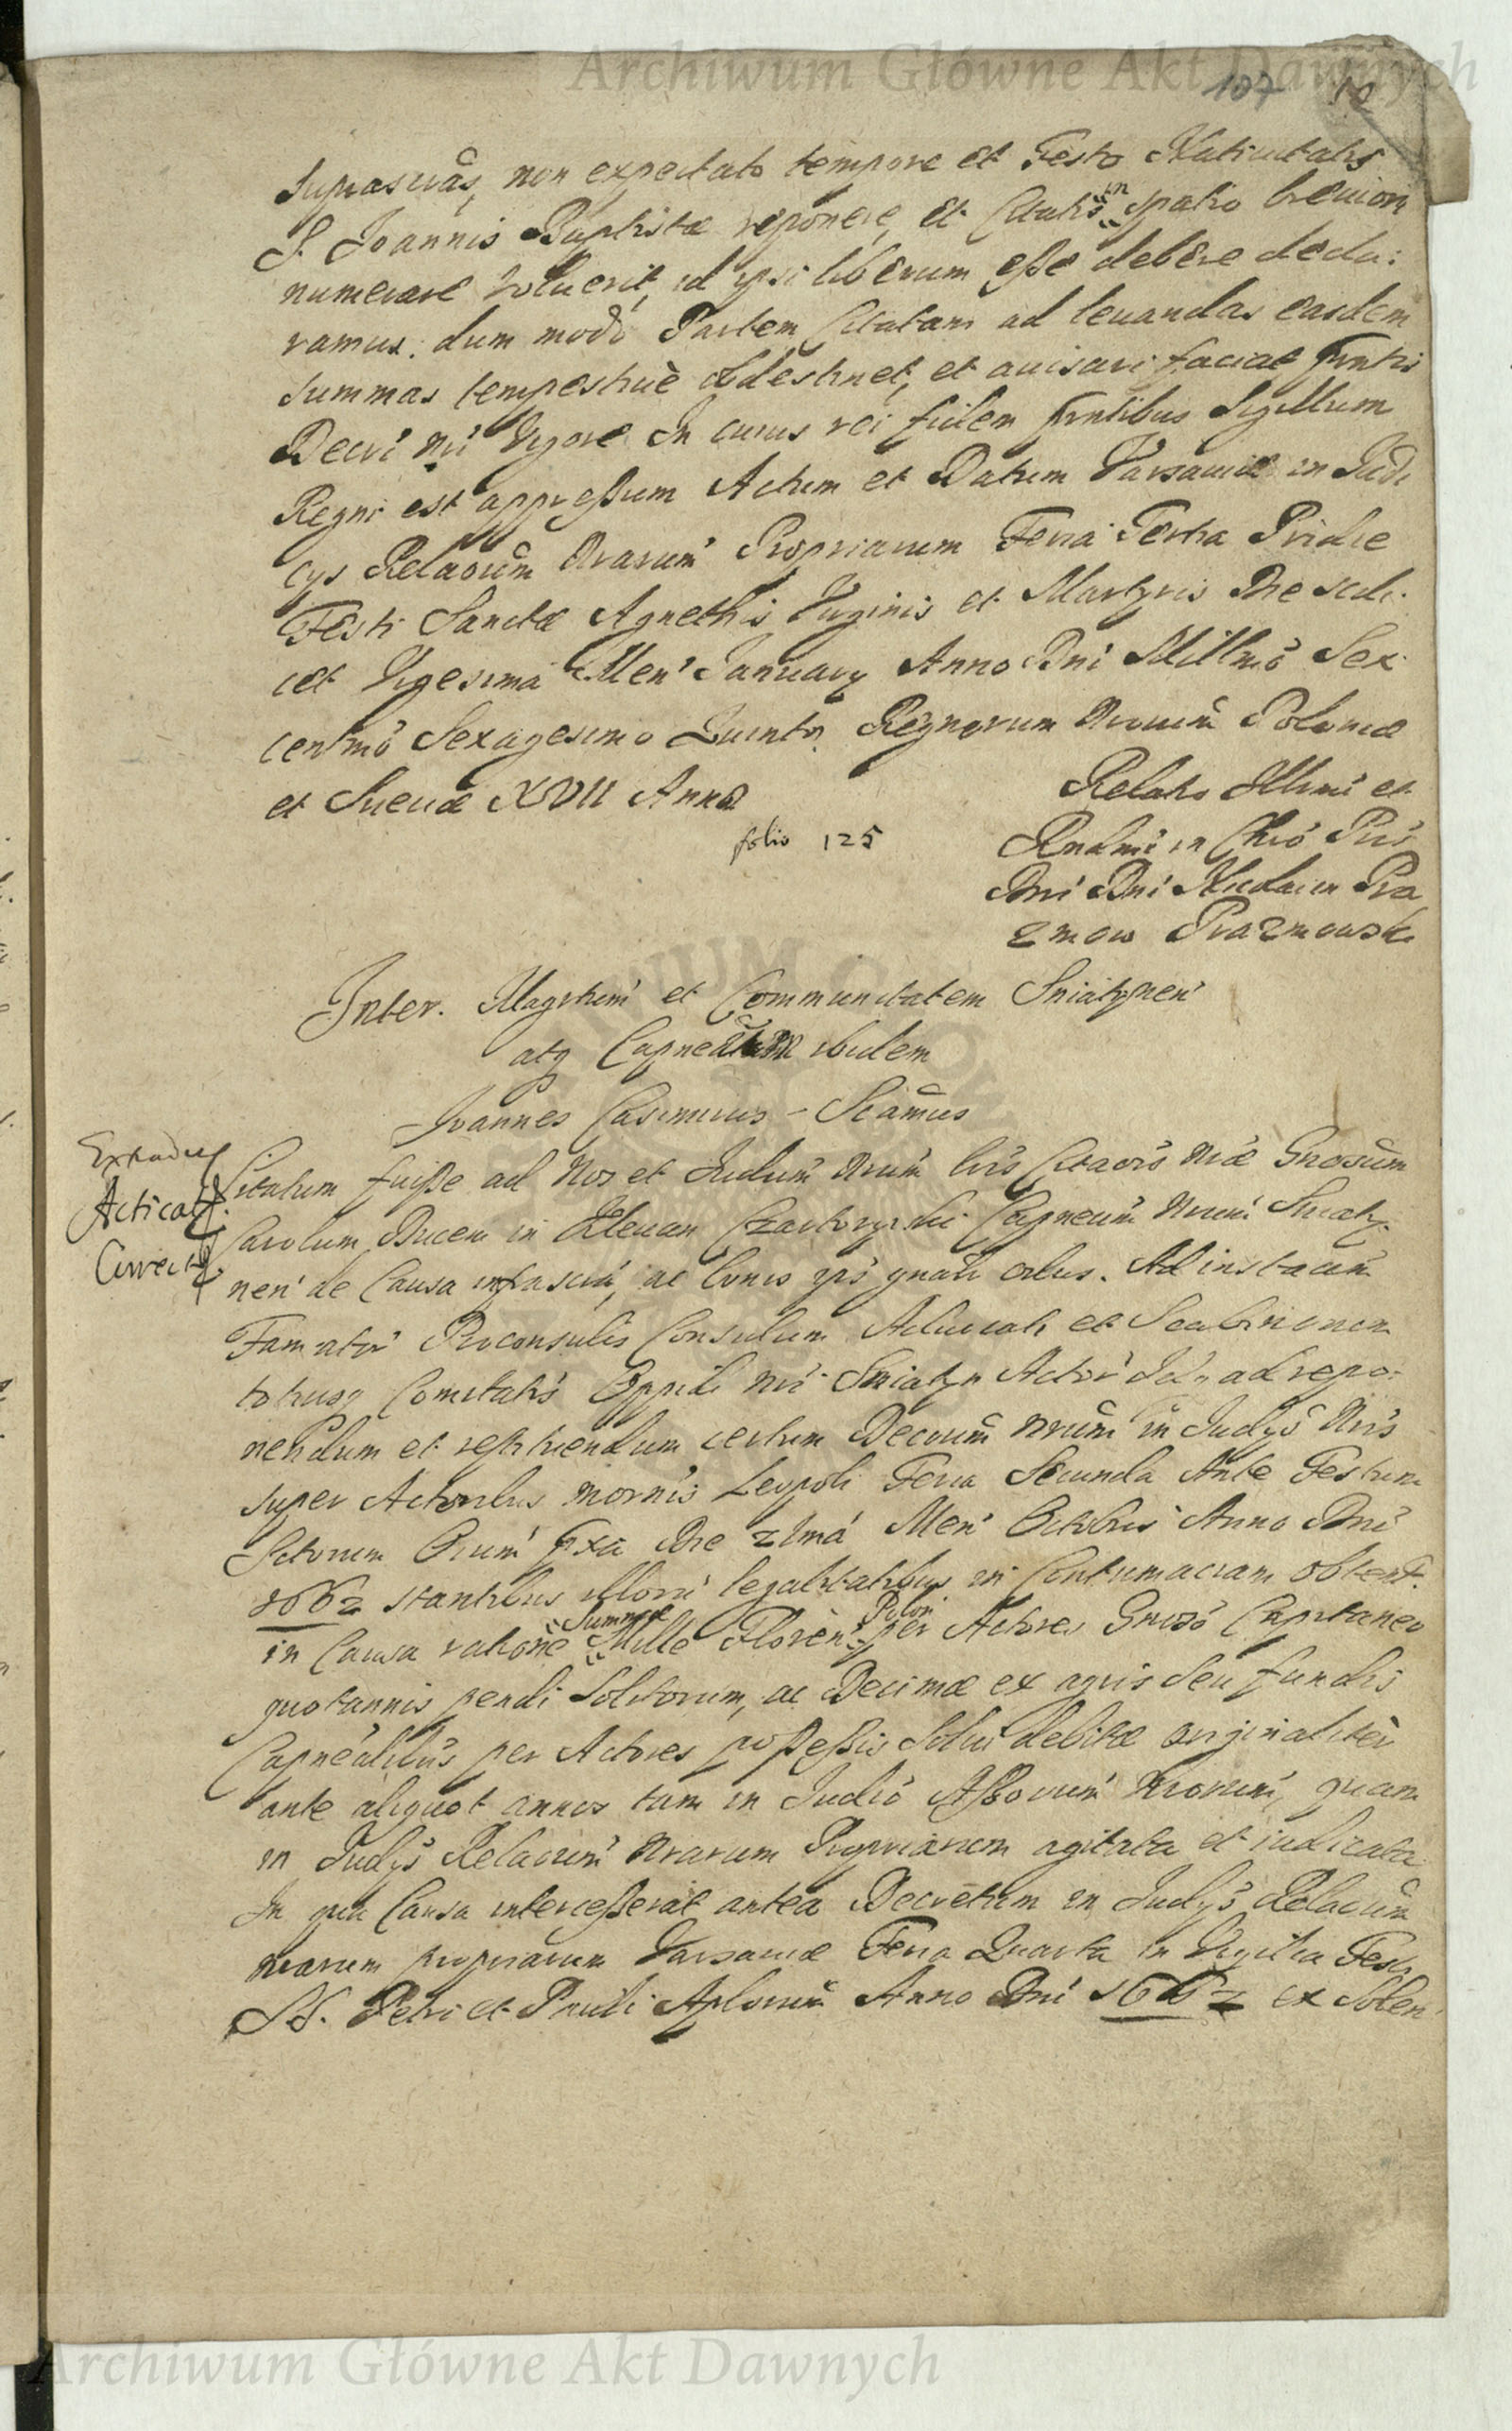 Archiwum Główne Akt Dawnych
107
suprascrãs, non expectato tempore et Festo Natiuitatis
S. Joannis Baptistæ reponere, et Citatis in spatio breuiori
numerare voluerit, id ipsi liberum eße debere decla:
ramus. dum modò Partem Citatam ad leuandas easdem
summas tempestiuè obdestinet, et auisari faciat pñtis
Decri nri vigore In cuius rei fidem pñtibus Sigillum
Regni est appreßum Actum et Datum Varsauiæ in Judi
cys Relaõum nrarum Propriarum Feria Tertia Pridie
Festi Sanctæ Agnethis Virginis et Martyris Die scili:
cet Vigesima Men' January Anno Dni Millmo Sex
centmo Sexagesimo Quinto Regnorum nrorum Poloniæ
et Sueciæ XVII Anno
Relatio Illmi et
folio 125
Rndmi in Chro Pris
Dni Dni Nicolai in Pra
zmow Prazmowski
Inter. Magrtum et Communitatem Sniatynen'
atq Capneum ibidem
Joannes Casimirus - Sigmus
Extradit
Citatum fuiße ad Nos et Judium nrum lris Citaõis nræ Gnosum
Acticat
Carolum Ducem in Klewan Czartoryski Capneum nrum Sniaty:
Correct
nen' de Causa infrascrã, ac bonis ips gnali orbus. Ad instaciam
Famator' Proconsulis Consulum Aduocati et Scabinorum
totiusq Comitatis Oppidi nri Sniatyn Actor' Idq ad repo:
nendum et restituendum certum Decrum nrum in Judys nris
super Actoribus mornis Leopoli Feria Secunda Ante Festum
Sctorum Orum pxa Die 21ma Men' Octobris Anno Dni
1662 stantibus illorum legalitatibus in Contumaciam obtent.
in Causa ratione Summæ Mille Floren' Polon per Actores Gnoso Capitaneo
quotannis pendi Solitorum, ac Decimæ ex agris seu fundis
Capnealibus per Actores poßeßis Solui debitæ originaliter
ante aliquot annos tam in Judio Aßorum nrorum, quam
in Judys Relaõum nrarum Propriarum agitata et iudicata
In qua Causa interceßerat antea Decretum in Judys Relaõum
nrarum propriarum Varsauiæ Feria Quarta in Vigilia Festi
SS. Petri et Pauli Aplorum Anno Dni 1662 ex Solen'
Archiwum Główne Akt Dawnych